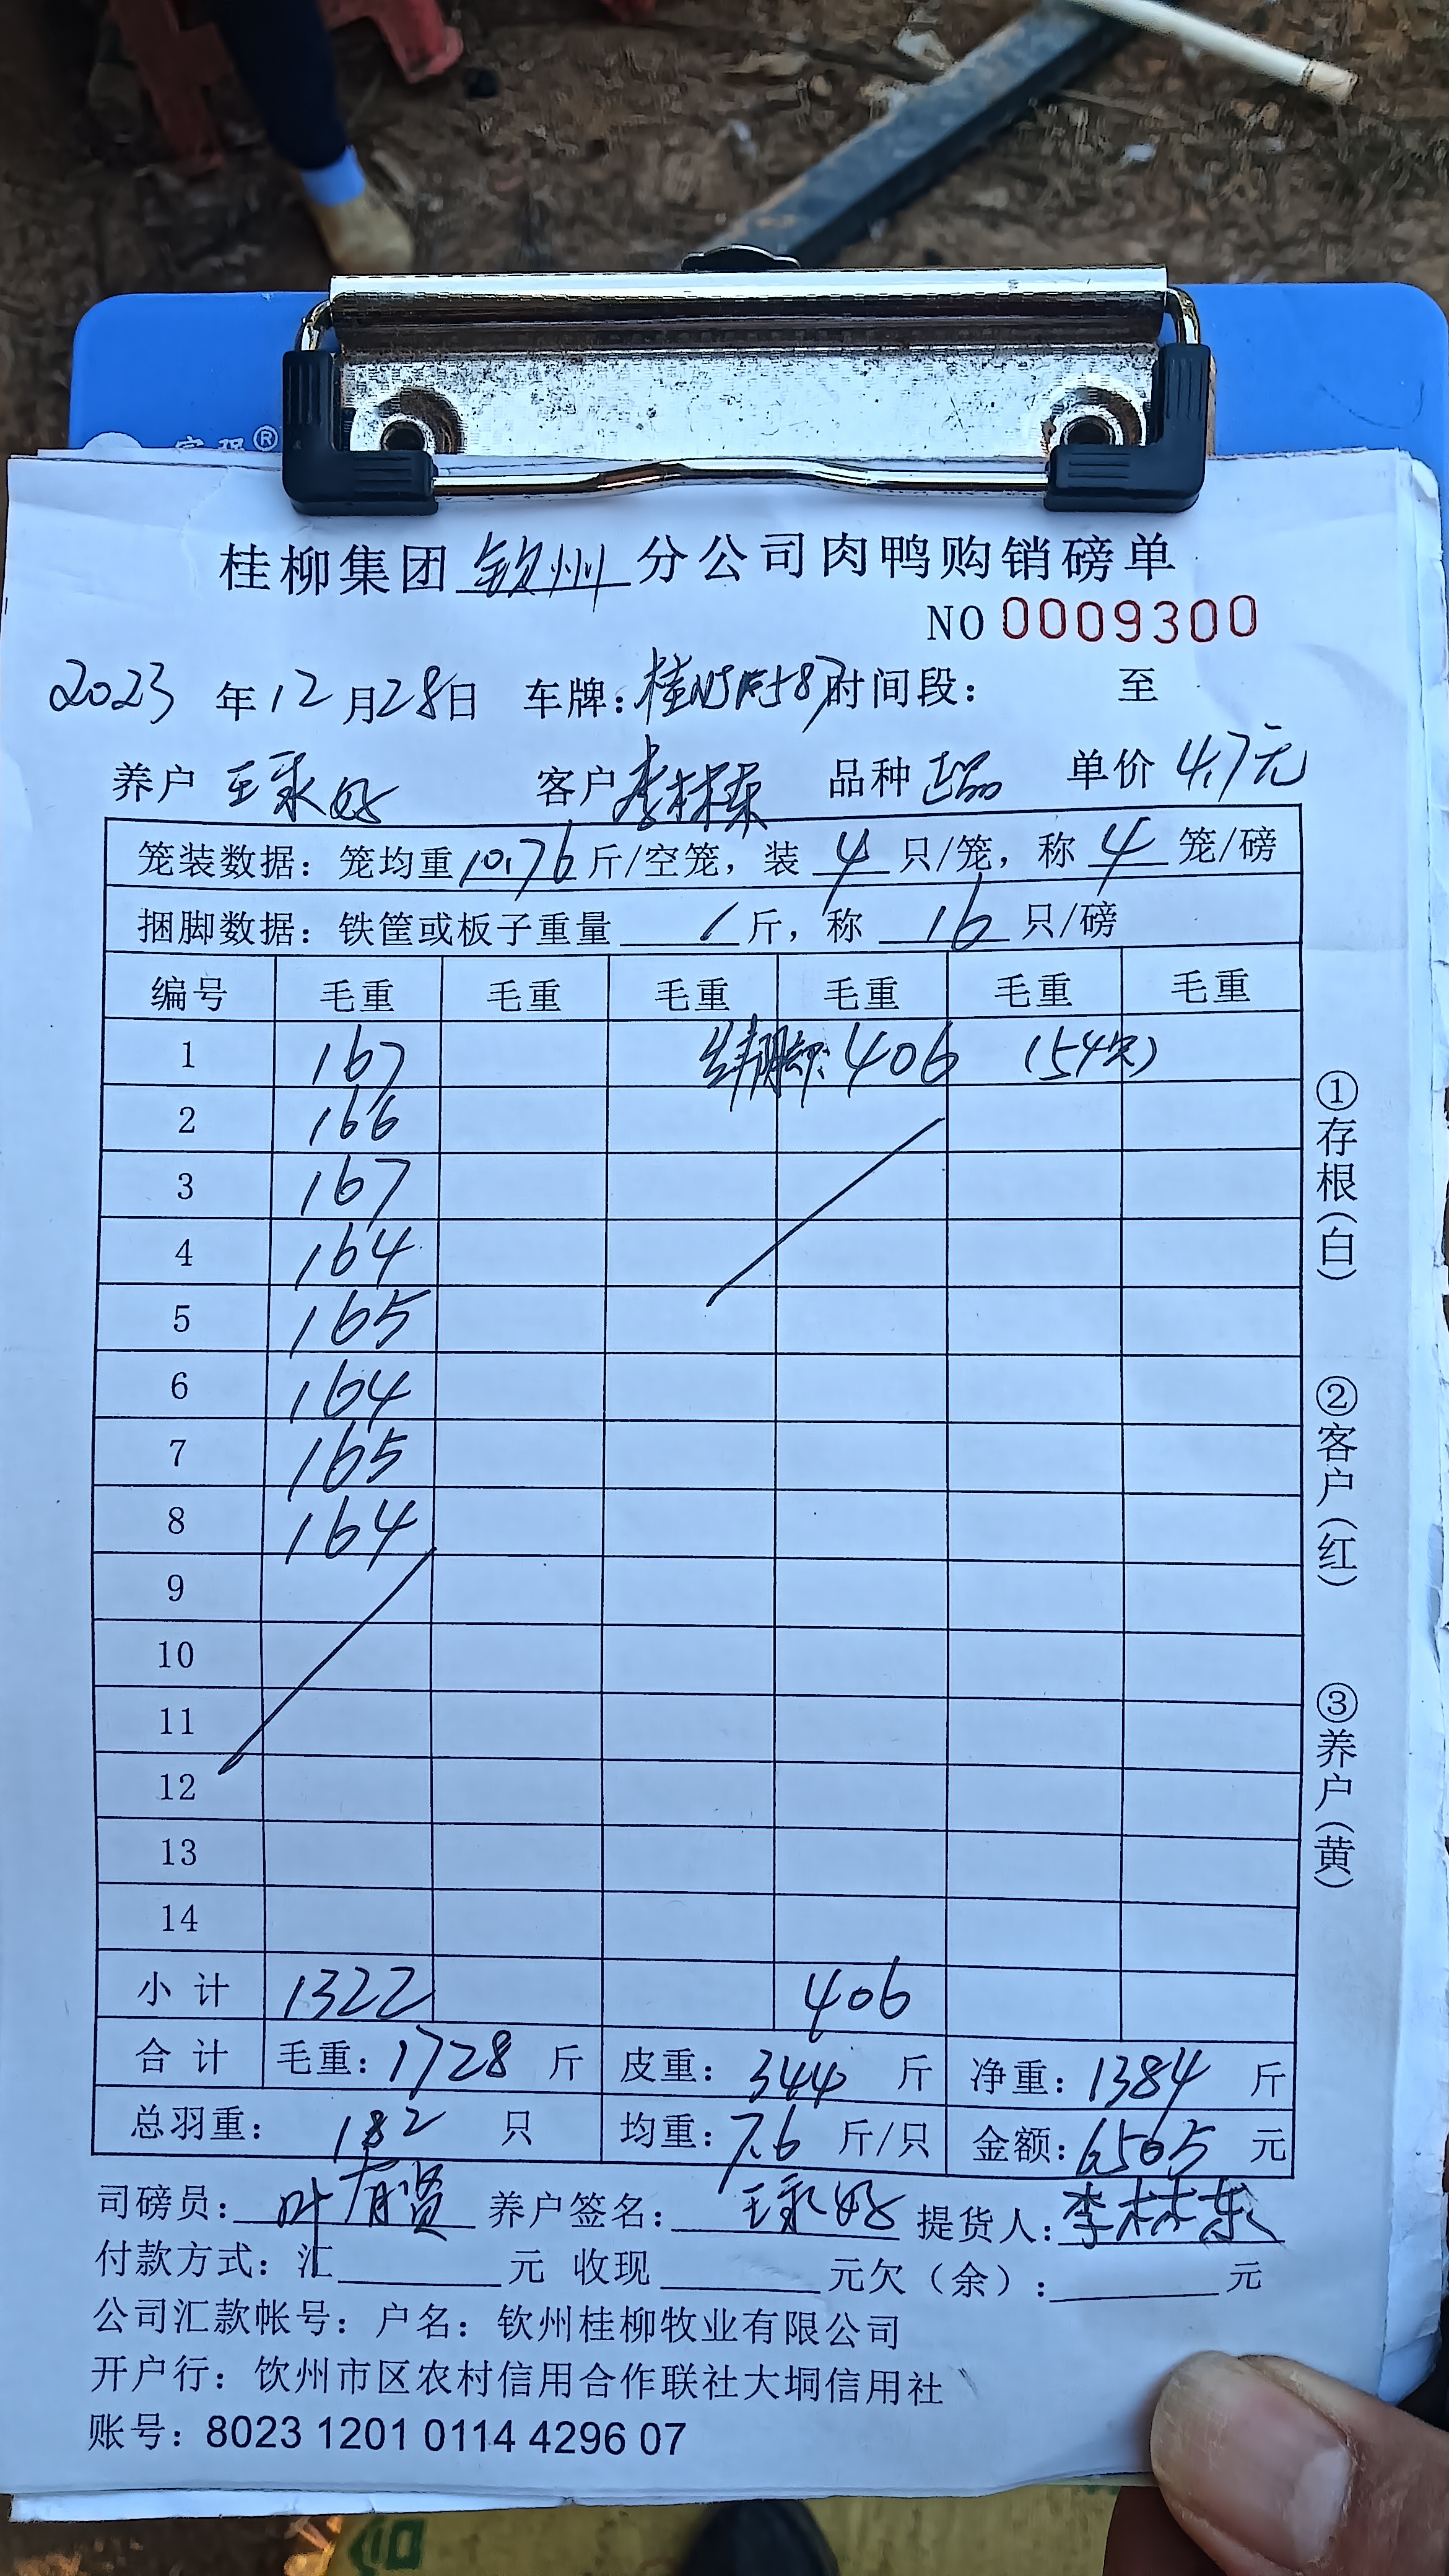 桂柳集团钦州分公司肉鸭购销磅单
NO 0009300
2023年12月28日 车牌: 时间段: 至
养户 王永好 客户 李林东 品种 正品 单价 4.7元
笼装数据: 笼均重10.76斤/空笼, 装4只/笼, 称4笼/磅
捆脚数据: 铁筐或板子重量 / 斤, 称16只/磅
编号 毛重 毛重 毛重 毛重 毛重 毛重
1 167 绑脚: 406 (54只)
2 166
3 167
4 164
5 165
6 164
7 165
8 164
9
10
11
12
13
14
小计 1322 406
合计 毛重: 1728 斤 皮重: 344 斤 净重: 1384 斤
总羽重: 182 只 均重: 7.6 斤/只 金额: 6505 元
司磅员: 叶有贤 养户签名: 王永好 提货人: 李林东
付款方式: 汇 元 收现 元欠(余): 元
公司汇款帐号: 户名: 钦州桂柳牧业有限公司
开户行: 饮州市区农村信用合作联社大垌信用社
账号: 8023 1201 0114 4296 07
①存根(白)
②客户(红)
③养户(黄)